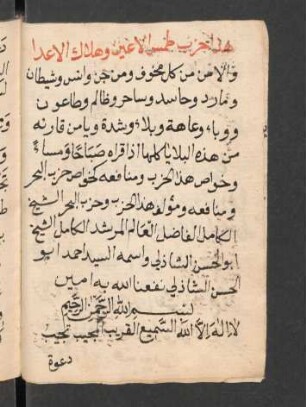 هذا حزب طمس الاعين وهلاك الاعدا
والامن من كل مخوف ومن جن وانس وشيطان
ومارد وحاسد وساحر وظالم وطاعون
ووباء وعاهة وبلاء وشدة ويامن قارئه
من هذه البلايا كلها اذا قراه صباحا ومساءً
وخواص هذا الحزب ومنافعه كخواص حزب البحر
ومنافعه ومؤلف هذا الحزب وحزب البحر الشيخ
الكامل الفاضل العالم المرشد الكامل الشيخ
ابو الحسن الشاذلي واسمه السيد احمد ابو
الحسن الشاذلي نفعنا الله به امين
بسم الله الرحمن الرحيم
لا اله الا الله السميع القريب المجيب تجيب
دعوة